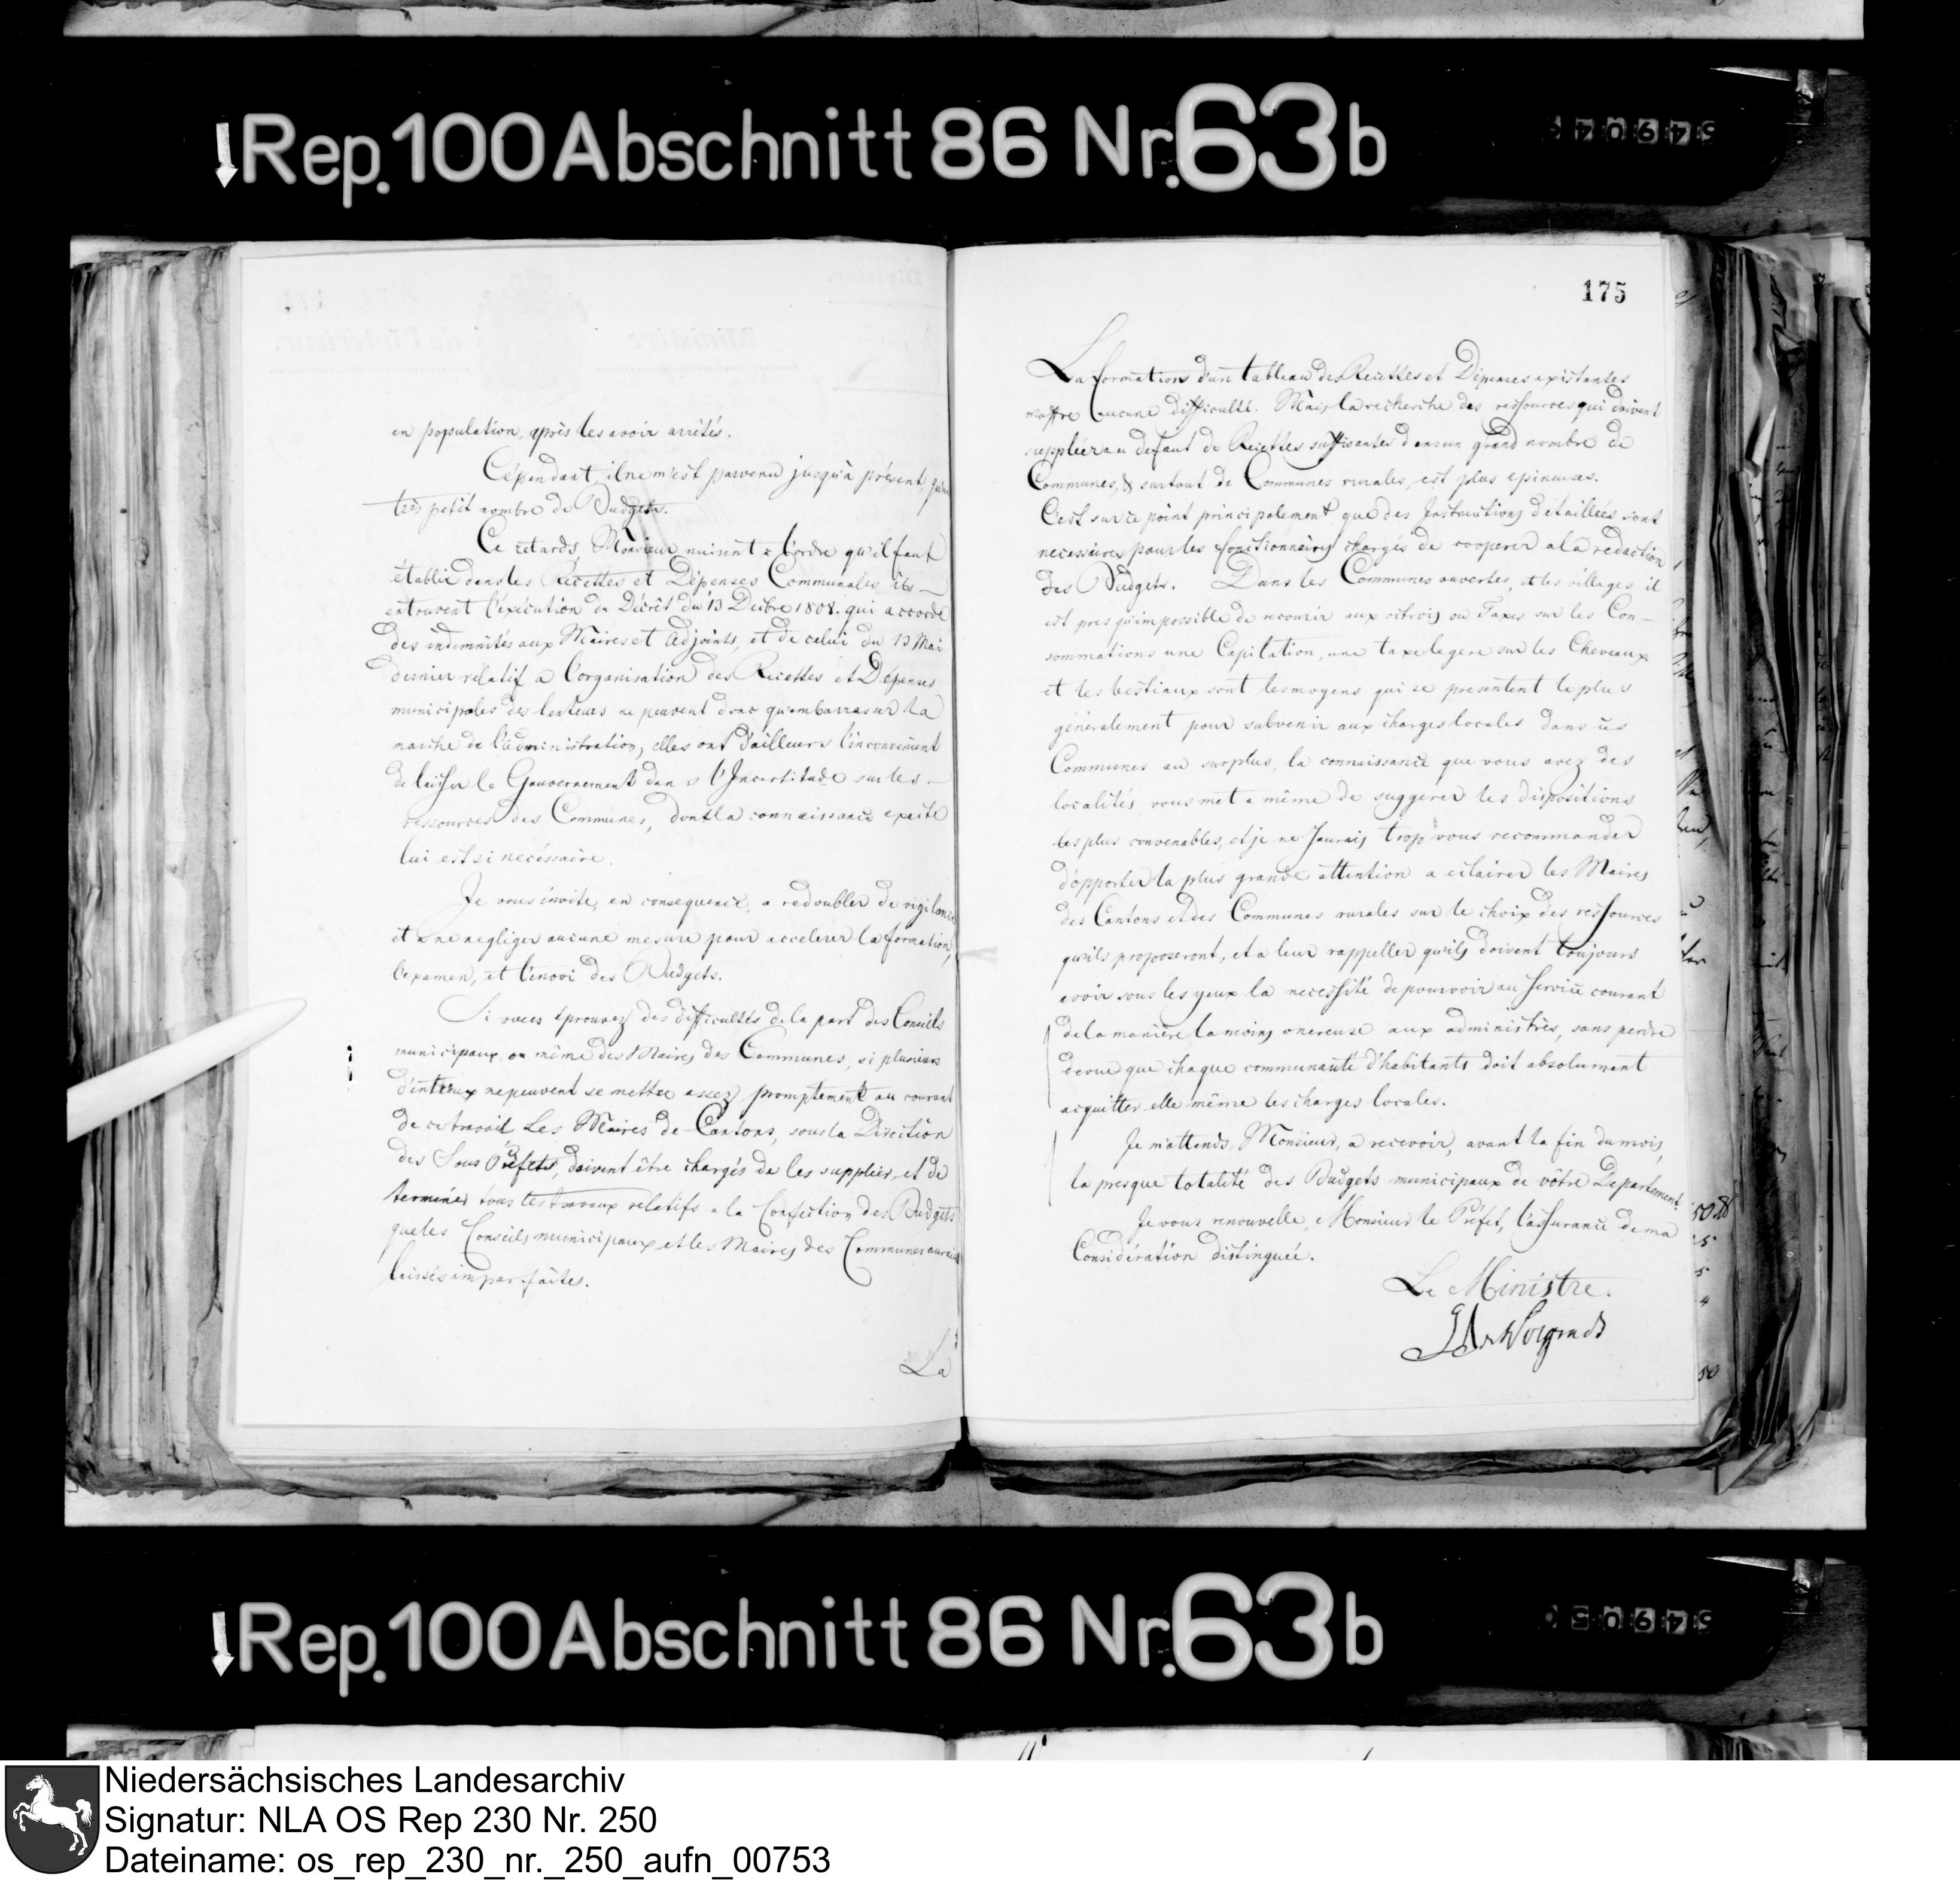 Rep. 100 Abschnitt 86 Nr. 63b
en population, après les avoir arrêtés.
Cépendant, il ne m'est parvenu jusqu'à présent qu'un
très petit nombre de Budgets.
Ce retards, Monsieur nuisent a l'ordre qu'il faut
établir dans les Récettes et Dépenses Communales ils
entravent l'éxécution du Décrêt du 13 Decbre 1808. qui accorde
des indemnités aux Maires et Adjoints, et de celui du 13 Mai
dernier relatif a l'organisation des Recettes et Dépenses
municipales des lenteurs ne peuvent donc qu'embarrasser la
marche de l'administration, elles ont d'ailleurs l'inconvenient
de laisser le Gouvernement dans l'Incertitude sur les
ressources des Communes, dont la connaissance exacte
lui est si necéssaire.
Je vous invite, en consequence, a redoubler de vigilance
et a ne negliger aucune mesure pour accelerer la formation,
l'examen, et l'envoi des Budgets.
Si vous éprouvez des difficultés de la part des Conseils
municipaux ou même des Maires des Communes, si plusieurs
d'entreux ne peuvent se mettre assez promptement au courant
de ce travail Les Maires de Cantons, sous la Direction
des Sous Préfets, doivent être chargés de les suppléer, et de
terminer tous les travaux relatifs a la Confection des Budgets
que les Conseils municipaux et les Maires des Communes auraient
laissés imparfaites.
La
175
La formation d'un tableau des Recettes et Dépenses existantes
n'offre aucune difficulté. Mais la recherche des ressources qui doivent
suppléer au defaut de Recettes suffisantes dans un grand nombre de
Communes, & surtout de Communes rurales, est plus epineuse.
C'est sur ce point principalement que des Instructions détaillées sont
necessaires pour les fonctionnaires chargés de cooperer a la redaction
des Budgets. Dans les Communes ouvertes, et les villages il
est presqu'impossible de recourir aux octrois ou Taxes sur les Con-
sommations une Capitation, une taxe legere sur les Cheveaux
et les bestiaux sont les moyens qui se presentent le plus
généralement pour subvenir aux charges locales dans ces
Communes au surplus, la connaissance que vous avez des
localités vous met a même de suggérer les dispositions
les plus convenables, et je ne saurais trop vous recommander
d'apporter la plus grande attention a eclairer les Maires
des Cantons et des Communes rurales sur le choix des ressources
qu'ils proposeront, et a leur rappeller qu'ils doivent toujours
avoir sous les yeux la necessité de pourvoir au service courant
de la manière la moins onereuse aux administrés, sans perdre
de vue que chaque communauté d'habitants doit absolument
acquitter elle même les charges locales.
Je m'attends, Monsieur, a recevoir, avant la fin du mois,
la presque totalité des Budgets municipaux de vôtre Département.
Je vous renouvelle, Monsieur le Préfet, l'assurance de ma
Considération distinguée.
Le Ministre.
Rep. 100 Abschnitt 86 Nr. 63b
Niedersächsisches Landesarchiv
Signatur: NLA OS Rep 230 Nr. 250
Dateiname: os_rep_230_nr._250_aufn_00753